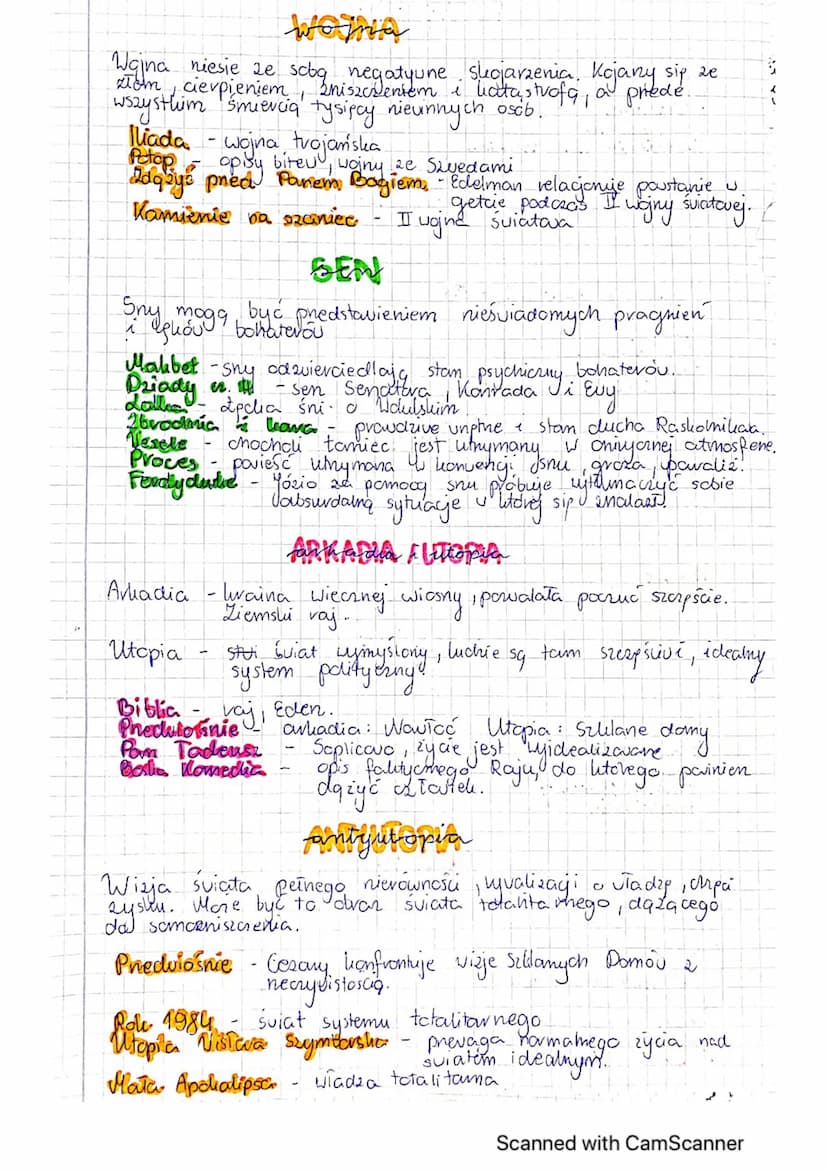 WOJNA
Wojna niesie ze sobą negatywne skojarzenia. Kojarzy się ze
złem, cierpieniem, zniszczeniem i katastrofą, a przede
wszystkim śmiercią tysięcy niewinnych osób.
Iliada - wojna trojańska
Potop - opisy bitew, wojny ze Szwedami
Zdążyć przed Panem Bogiem - Edelman relacjonuje powstanie w
getcie podczas II wojny światowej.
Kamienie na szaniec - II wojna światowa
SEN
Sny mogą być przedstawieniem nieświadomych pragnień
i lęków bohaterów
Makbet - sny odzwierciedlają stan psychiczny bohaterów.
Dziady cz. III - sen Senatora, Konrada i Ewy
Lalka - Izabela śni o Wokulskim
Zbrodnia i kara - prawdziwe wnętrze i stan ducha Raskolnikowa.
Wesele - chocholi taniec jest utrzymany w onirycznej atmosferze.
Proces - powieść utrzymana w konwencji snu, groza, paraliż!
Ferdydurke - Józio za pomocą snu próbuje wytłumaczyć sobie
absurdalną sytuację w której się znalazł.
ARKADIA I UTOPIA
Arkadia - kraina wiecznej wiosny, pozwalała poczuć szczęście.
Ziemski raj.
Utopia - świat wymyślony, ludzie są tam szczęśliwi, idealny
system polityczny.
Biblia - raj, Eden.
Przedwiośnie - arkadia: Nawłoć Utopia: Szklane domy
Pan Tadeusz - Soplicowo, życie jest wyidealizowane
Boska Komedia - opis faktycznego Raju, do którego powinien
dążyć człowiek.
ANTYUTOPIA
Wizja świata pełnego nierówności, rywalizacji o władzę, chęci
zysku. Może być to obraz świata totalitarnego, dążącego
do samozniszczenia.
Przedwiośnie - Cezary konfrontuje wizje Szklanych Domów z
rzeczywistością.
Rok 1984 - świat systemu totalitarnego
Utopia Wisława Szymborska - przewaga normalnego życia nad
światem idealnym.
Mała Apokalipsa - władza totalitarna
Scanned with CamScanner